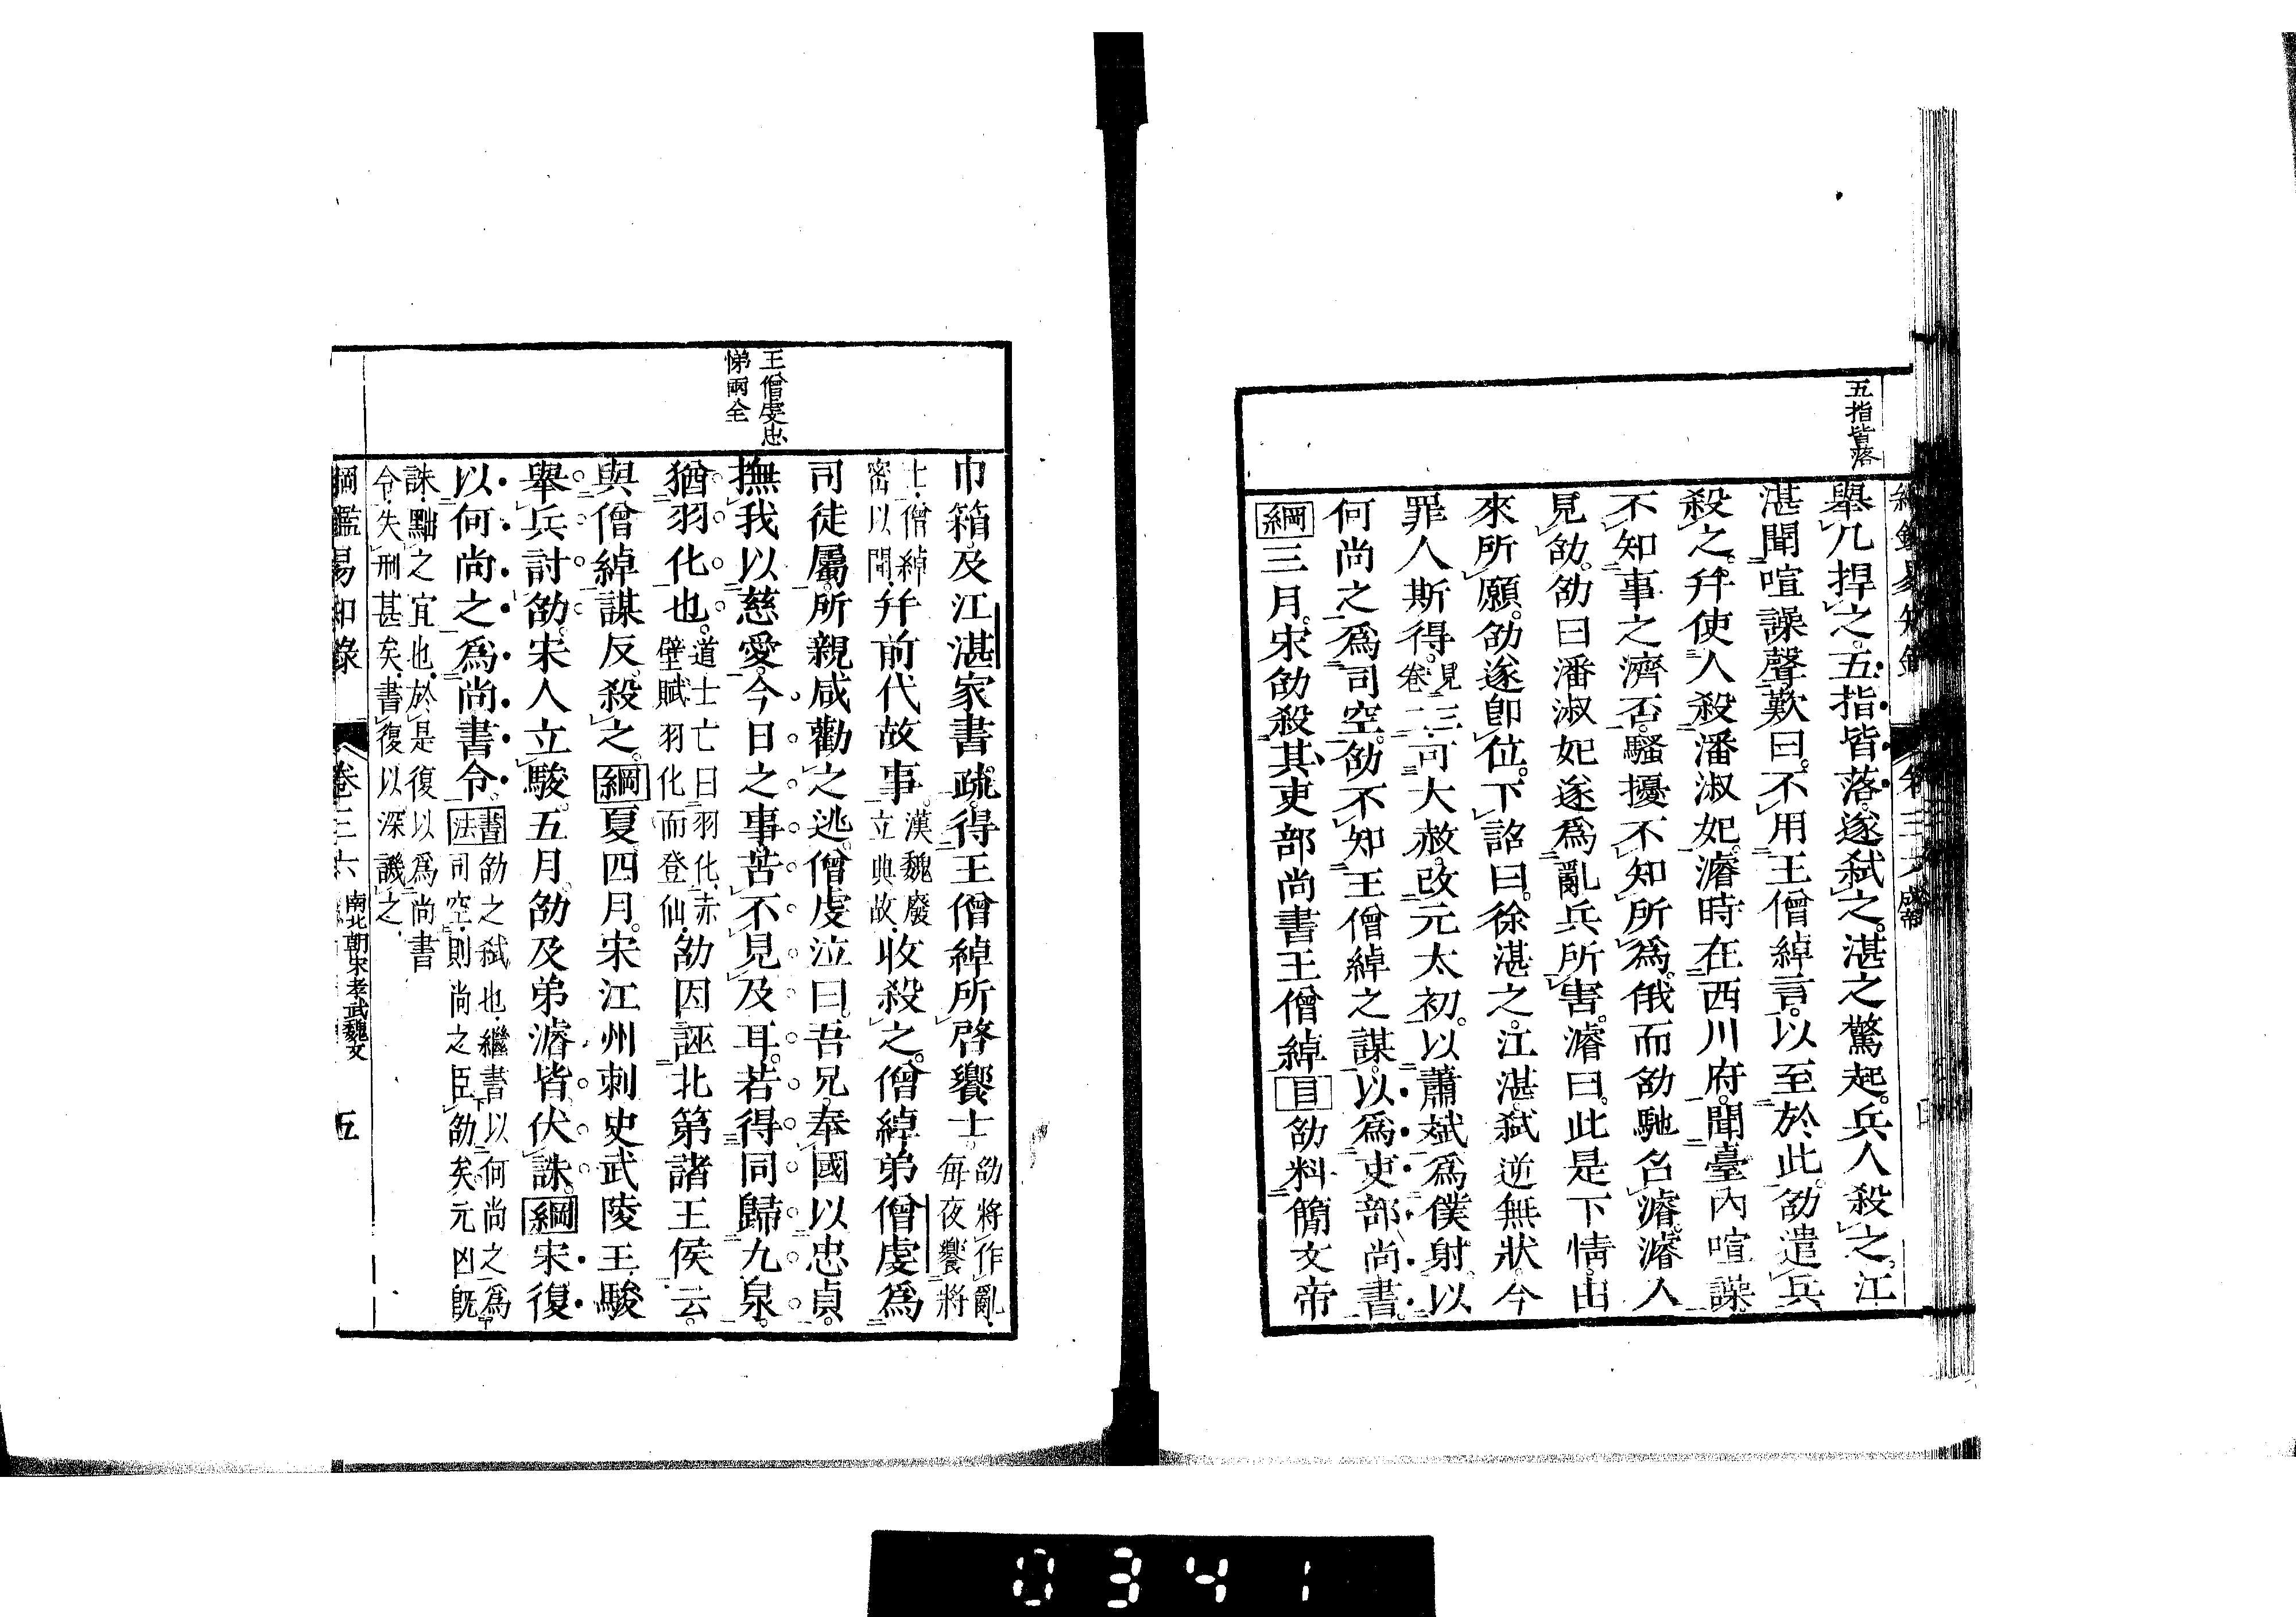 五指皆落
舉几捍之。五指皆落。遂弑之。湛之驚起。兵人殺之。江
湛聞喧譟聲歎曰。不用王僧綽言。以至於此。劭遣兵
殺之。幷使人殺潘淑妃。濬時在西川府。聞臺內喧譟。
不知事之濟否。騷擾不知所爲。俄而劭馳召濬。濬入
見劭。劭曰潘淑妃遂爲亂兵所害。濬曰。此是下情。由
來所願。劭遂卽位。下詔曰。徐湛之。江湛。弑逆無狀。今
罪人斯得。見三卷二可大赦。改元太初。以蕭斌爲僕射。以
何尚之爲司空。劭不知王僧綽之謀。以爲吏部尚書。
綱三月。宋劭殺其吏部尚書王僧綽目劭料簡文帝
王僧虔忠
悌兩全
巾箱及江湛家書疏。得王僧綽所啓饗士。劭將作亂。每夜饗將
士。僧綽密以聞。幷前代故事。漢魏廢立典故。收殺之。僧綽弟僧虔爲
司徒屬。所親咸勸之逃。僧虔泣曰。吾兄奉國以忠貞。
撫我以慈愛。今日之事。苦不見及耳。若得同歸九泉。
猶羽化也。道士亡曰羽化。赤壁賦羽化而登仙。劭因誣北第諸王侯云。
與僧綽謀反。殺之。綱夏四月。宋江州刺史武陵王駿
舉兵討劭。宋人立駿。五月。劭及弟濬皆伏誅。綱宋復
以何尚之爲尚書令。書法劭之弑也。繼書以何尚之爲司空。則尚之臣劭矣。元凶旣
誅。黜之宜也。於是復以爲尚書令。失刑甚矣。書復以深譏之。
綱鑑易知錄 卷三六 南北朝宋孝武魏文 五